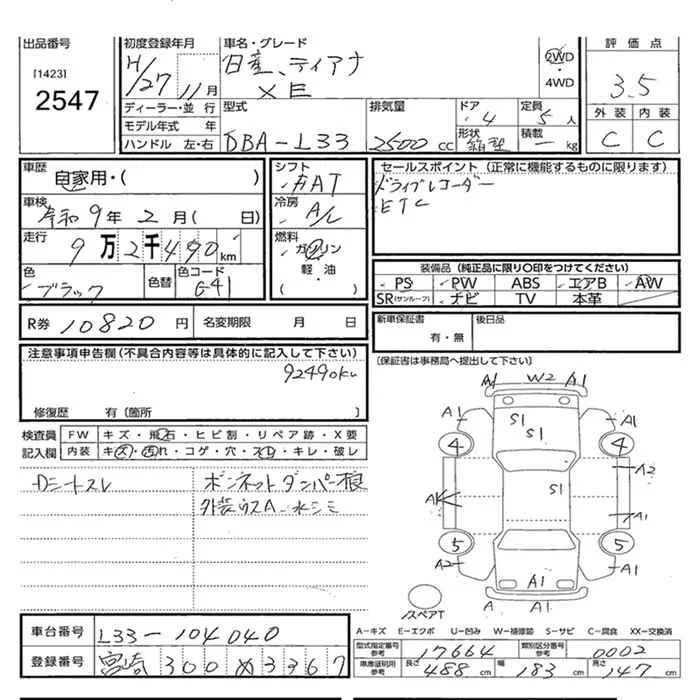 出品番号
[1423]
2547
初度登録年月
H/27年 11月
ディーラー・並 行
モデル年式 年
ハンドル 左・右
車名・グレード
日産、ティアナ
XE
2WD
・
4WD
型式
DBA-L33
排気量
2500 cc
ドア
4
形状
箱型
定員
5 人
積載
ー kg
評 価 点
3.5
外 装 内 装
C C
車歴
自家用・( )
車検
令和 9年 2月( 日)
走行
9万2千490km
色
ブラック
色替
色コード
G41
シフト
FAT
冷房
A/C
燃料
ガソリン
軽・油
( )
セールスポイント (正常に機能するものに限ります)
ドライブレコーダー
ETC
装備品 (純正品に限り〇印をつけてください)
PS PW ABS エアB AW
SR(サンルーフ) ナビ TV 本革
R券 10820円
名変期限 月 日
新車保証書
有・無
後日品
〔保証書は事務局へ提出して下さい〕
注意事項申告欄(不具合内容等は具体的に記入して下さい)
92490km
修復歴 有〔箇所 〕
検査員
記入欄
FW キズ・飛石・ヒビ割・リペア跡・X要
内装 キズ・汚れ・コゲ・穴・スレ・キレ・破レ
Dシートスレ
ボンネットダンパー痕
外装ウスA-水シミ
A1 W2 A1
A1 S1 A1
S1
4 4
A2
S1
A
A1
5 5
A2 A1
A1
A A1
スペアT
車台番号
L33-104040
登録番号
宮崎 300 め 3367
A-キズ E-エクボ U-凹み W-補修跡 S-サビ C-腐食 XX-交換済
型式指定番号
参考
17664
類別区分番号
参考
0002
車庫証明用
参考
長さ
488 cm
幅
183 cm
高さ
147 cm